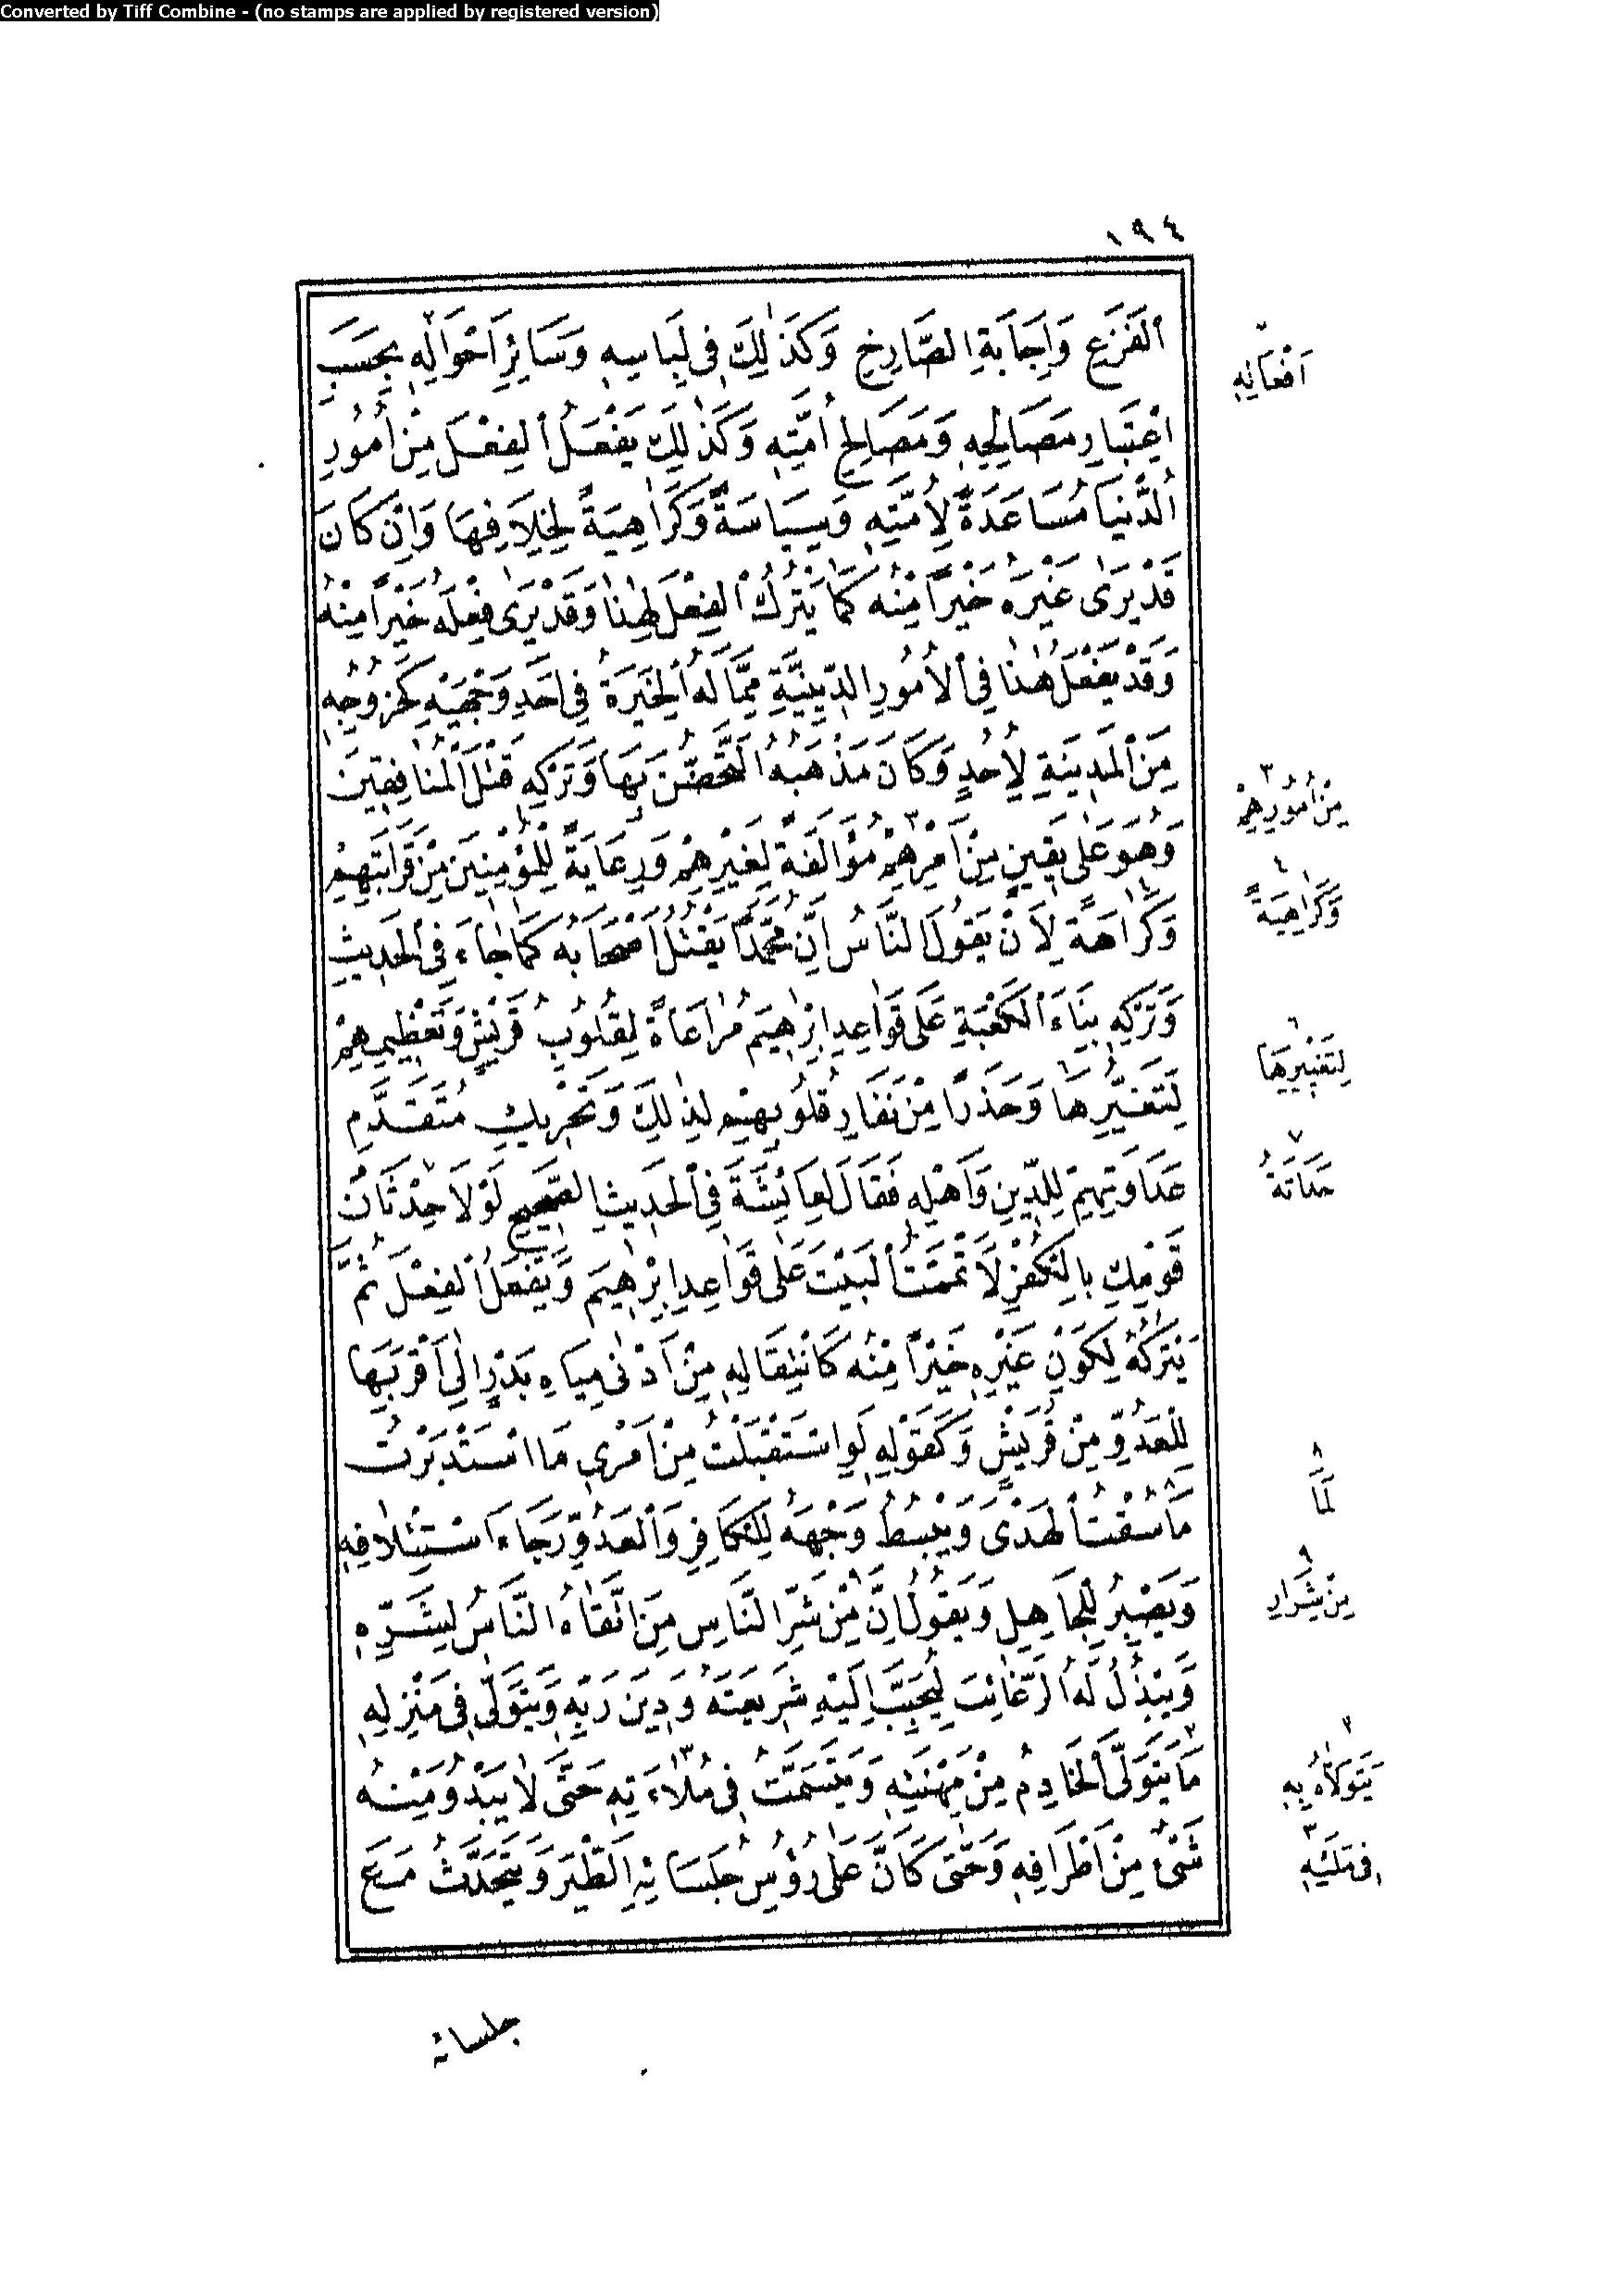 Converted by Tiff Combine - (no stamps are applied by registered version)
١٩٤
اَلْفَزَعِ وَاِجَابَةِ الصَّارِخِ وَكَذٰلِكَ فِى لِبَاسِهِ وَسَائِرِ اَحْوَالِهِ بِحَسَبِ
اعْتِبَارِ مَصَالِحِهِ وَمَصَالِحِ اُمَّتِهِ وَكَذٰلِكَ يَفْعَلُ الْفِعْلَ مِنْ اُمُورِ
الدُّنْيَا مُسَاعَدَةً لِاُمَّتِهِ وَسِيَاسَةً وَكَرَاهِيَةً لِخِلَافِهَا وَاِنْ كَانَ
قَدْ يَرٰى غَيْرَهُ خَيْرًا مِنْهُ كَمَا يَتْرُكُ الْفِعْلَ لِهٰذَا وَقَدْ يَرٰى فِعْلَهُ خَيْرًا مِنْهُ
وَقَدْ يَفْعَلُ هٰذَا فِى الْاُمُورِ الدِّينِيَّةِ مِمَّا لَهُ الْخِيَرَةُ فِى اَحَدِ وَجْهَيْهِ كَخُرُوجِهِ
مِنَ الْمَدِينَةِ لِاُحُدٍ وَكَانَ مَذْهَبُهُ التَّحَصُّنَ بِهَا وَتَرْكِهِ قَتْلَ الْمُنَافِقِينَ
وَهُوَ عَلٰى يَقِينٍ مِنْ اَمْرِهِمْ مُؤَالَفَةً لِغَيْرِهِمْ وَرِعَايَةً لِلْمُؤْمِنِينَ مِنْ قَرَابَتِهِمْ
وَكَرَاهَةً لِاَنْ يَقُولَ النَّاسُ اِنَّ مُحَمَّدًا يَقْتُلُ اَصْحَابَهُ كَمَا جَاءَ فِى الْحَدِيثِ
وَتَرْكِهِ بِنَاءَ الْكَعْبَةِ عَلٰى قَوَاعِدِ اِبْرٰهِيمَ مُرَاعَاةً لِقُلُوبِ قُرَيْشٍ وَتَعْظِيمِهِمْ
لِتَغَيُّرِهَا وَحَذَرًا مِنْ نَفَارِ قُلُوبِهِمْ لِذٰلِكَ وَتَحْرِيكِ مُتَقَدَّمِ
عَدَاوَتِهِمْ لِلدِّينِ وَاَهْلِهِ فَقَالَ لِعَائِشَةَ فِى الْحَدِيثِ الصَّحِيحِ لَوْلَا حِدْثَانُ
قَوْمِكِ بِالْكُفْرِ لَاَتْمَمْتُ الْبَيْتَ عَلٰى قَوَاعِدِ اِبْرٰهِيمَ وَيَفْعَلُ الْفِعْلَ ثُمَّ
يَتْرُكُهُ لِكَوْنِ غَيْرِهِ خَيْرًا مِنْهُ كَانْتِقَالِهِ مِنْ اَدْنٰى مِيَاهِ بَدْرٍ اِلٰى اَقْرَبِهَا
لِلْعَدُوِّ مِنْ قُرَيْشٍ وَكَقَوْلِهِ لَوِ اسْتَقْبَلْتُ مِنْ اَمْرِى مَا اسْتَدْبَرْتُ
مَا سُقْتُ الْهَدْىَ وَيَبْسُطُ وَجْهَهُ لِلْكَافِرِ وَالْعَدُوِّ رَجَاءَ اسْتِئْلَافِهِ
وَيَصْبِرُ لِلْجَاهِلِ وَيَقُولُ اِنَّ مِنْ شَرِّ النَّاسِ مَنِ اتَّقَاهُ النَّاسُ لِشَرِّهِ
وَيَبْذُلُ لَهُ الرَّغَائِبَ لِيُحَبِّبَ اِلَيْهِ شَرِيعَتَهُ وَدِينَ رَبِّهِ وَيَتَوَلّٰى فِى مَنْزِلِهِ
مَا يَتَوَلَّى الْخَادِمُ مِنْ مِهْنَتِهِ وَيَتَسَمَّتُ فِى مُلَاءَتِهِ حَتّٰى لَا يَبْدُوَ مِنْهُ
شَىْءٌ مِنْ اَطْرَافِهِ وَحَتّٰى كَاَنَّ عَلٰى رُؤُسِ جُلَسَائِهِ الطَّيْرَ وَيَتَحَدَّثُ مَعَ
اَفْعَالِهِ
٣
مِنْ اُمُورِهِمْ
٤
وَكَرَاهِيَةً
٦
لِتَغْيِيرِهَا
٧
حَدَاثَةُ
٨
لَمَا
٩
مِنْ شِرَارِ
٢
يَتَوَلَّاهُ بِهِ
٣
فِى
جلسائه